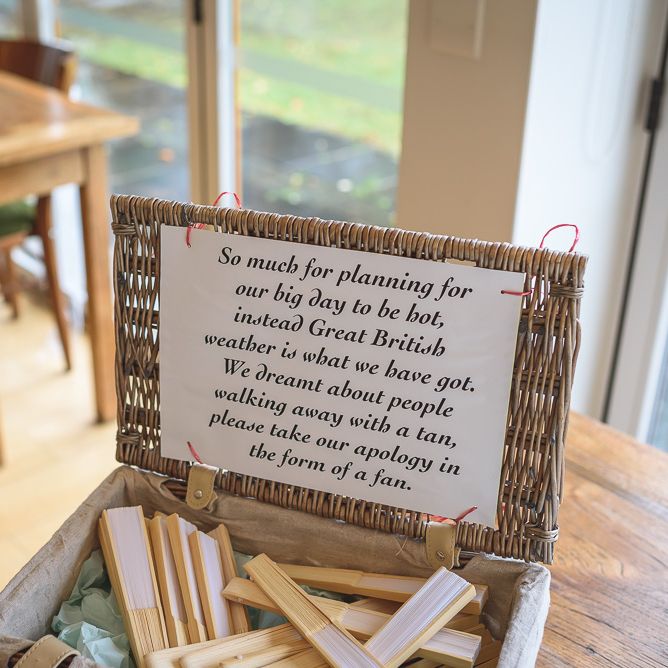 So much for planning for
our big day to be hot,
instead Great British
weather is what we have got.
We dreamt about people
walking away with a tan,
please take our apology in
the form of a fan.